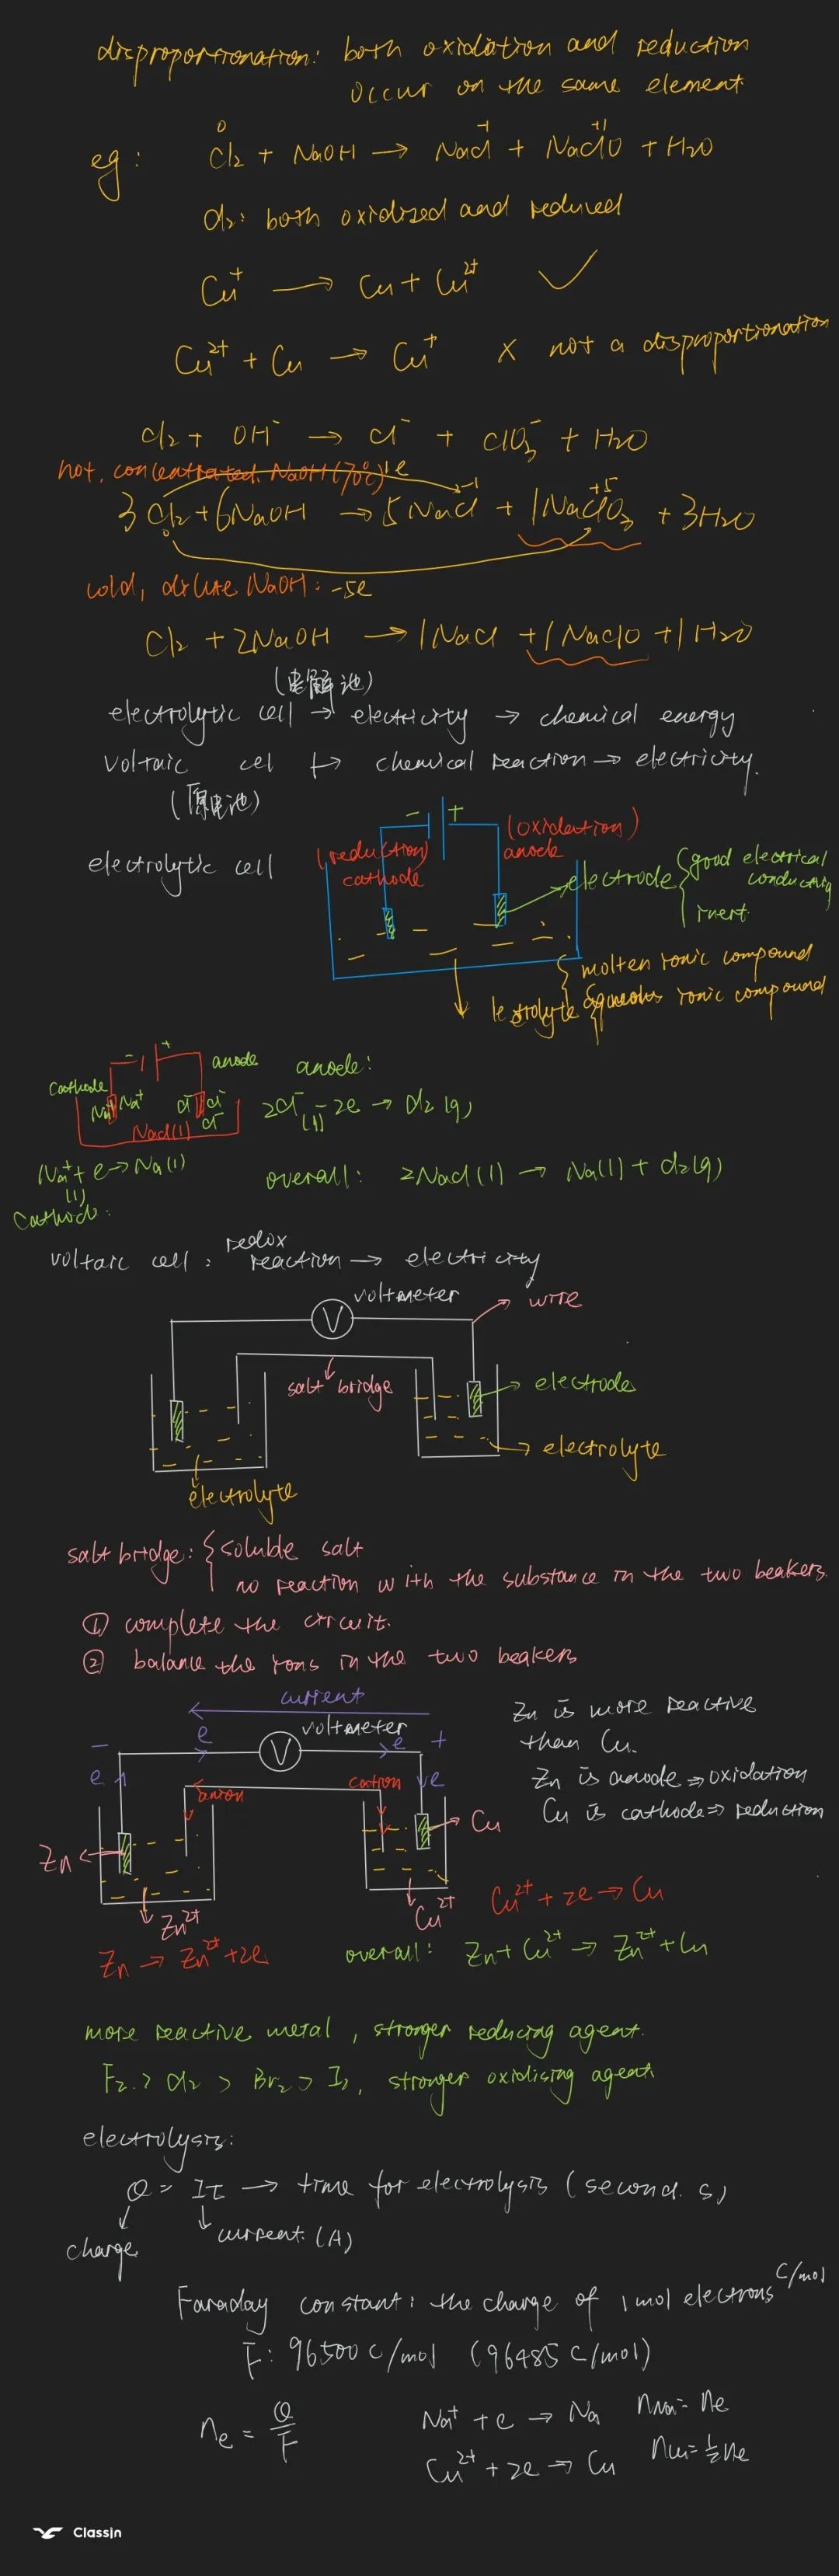 disproportionation: both oxidation and reduction
occur on the same element
eg:
0 -1 +1
Cl₂ + NaOH → NaCl + NaClO + H₂O
Cl₂: both oxidized and reduced
Cu⁺ → Cu + Cu²⁺ ✓
Cu²⁺ + Cu → Cu⁺ × not a disproportionation
Cl₂ + OH⁻ → Cl⁻ + ClO₃⁻ + H₂O
hot, concentrated NaOH (70℃) 1e
-1 +5
3Cl₂ + 6NaOH → 5NaCl + 1NaClO₃ + 3H₂O
0
cold, dilute NaOH: -5e
Cl₂ + 2NaOH → 1NaCl + 1NaClO + 1H₂O
(电解池)
electrolytic cell → electricity → chemical energy
voltaic cell → chemical reaction → electricity.
(原电池)
electrolytic cell
- +
(reduction)
cathode
(oxidation)
anode
electrode { good electrical
conducting
inert
lectrolyte { molten ionic compound
aqueous ionic compound
- +
cathode
anode
Na⁺ Na⁺
Cl⁻ Cl⁻
Cl⁻
NaCl(l)
anode:
2Cl⁻ - 2e → Cl₂(g)
(l)
Na⁺ + e → Na(l)
(l)
cathode:
overall: 2NaCl(l) → Na(l) + Cl₂(g)
voltaic cell: redox
reaction → electricity
voltmeter
V
wire
salt bridge
electrode
electrolyte
electrolyte
salt bridge: { soluble salt
no reaction with the substance in the two beakers.
① complete the circuit.
② balance the ions in the two beakers
current
voltmeter
- e V e +
e e
anion cation
Zn
Cu
Zn²⁺
Cu²⁺
Zn is more reactive
than Cu.
Zn is anode ⇒ oxidation
Cu is cathode ⇒ reduction
Cu²⁺ + 2e → Cu
Zn → Zn²⁺ + 2e
overall: Zn + Cu²⁺ → Zn²⁺ + Cu
more reactive metal, stronger reducing agent.
F₂ > Cl₂ > Br₂ > I₂, stronger oxidising agent
electrolysis:
Q = It → time for electrolysis (second. s)
charge
current (A)
Faraday constant: the charge of 1 mol electrons C/mol
F: 96500 C/mol (96485 C/mol)
nₑ = Q/F
Na⁺ + e → Na nNa = ne
Cu²⁺ + 2e → Cu nCu = ½ne
ClassIn